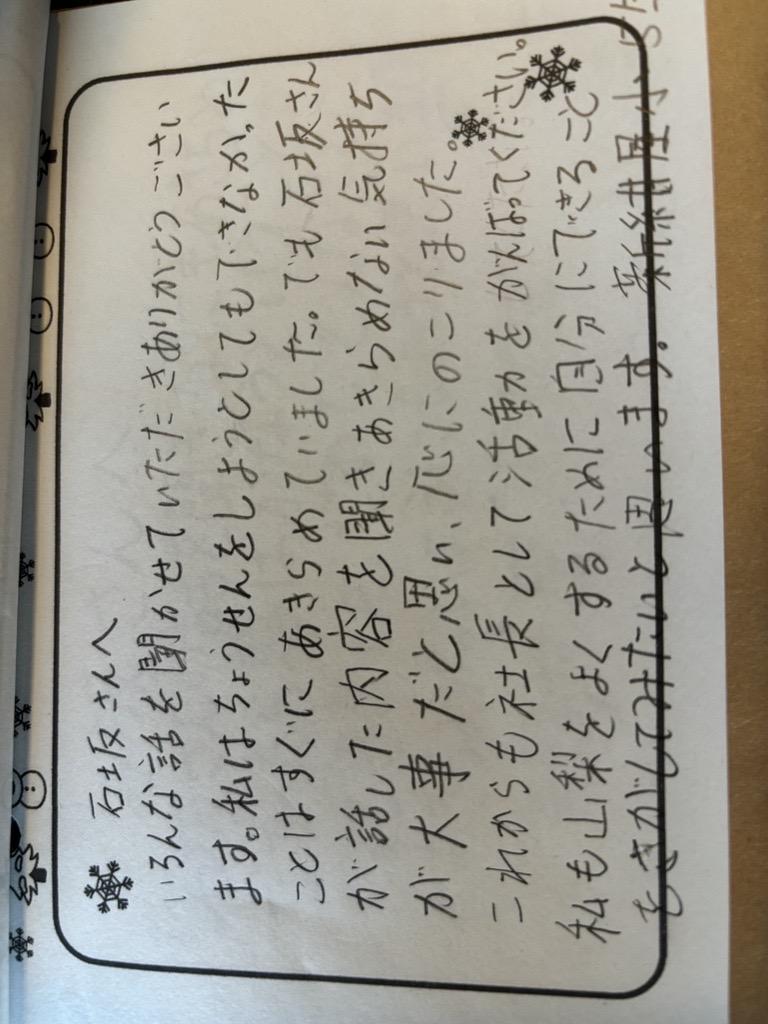 石坂さんへ
いろんな話を聞かせていただきありがとうございい
ます。私はちょうせんをしようとしてもできなかった
ことはすぐにあきらめていました。でも石坂さん
が話した内容を聞きあきらめない気持ち
が大事だと思い、心にのこりました。
これからも社長として活動をがんばってください。
私も山梨をよくするために自分にできること
をさがしてみたいと思います。